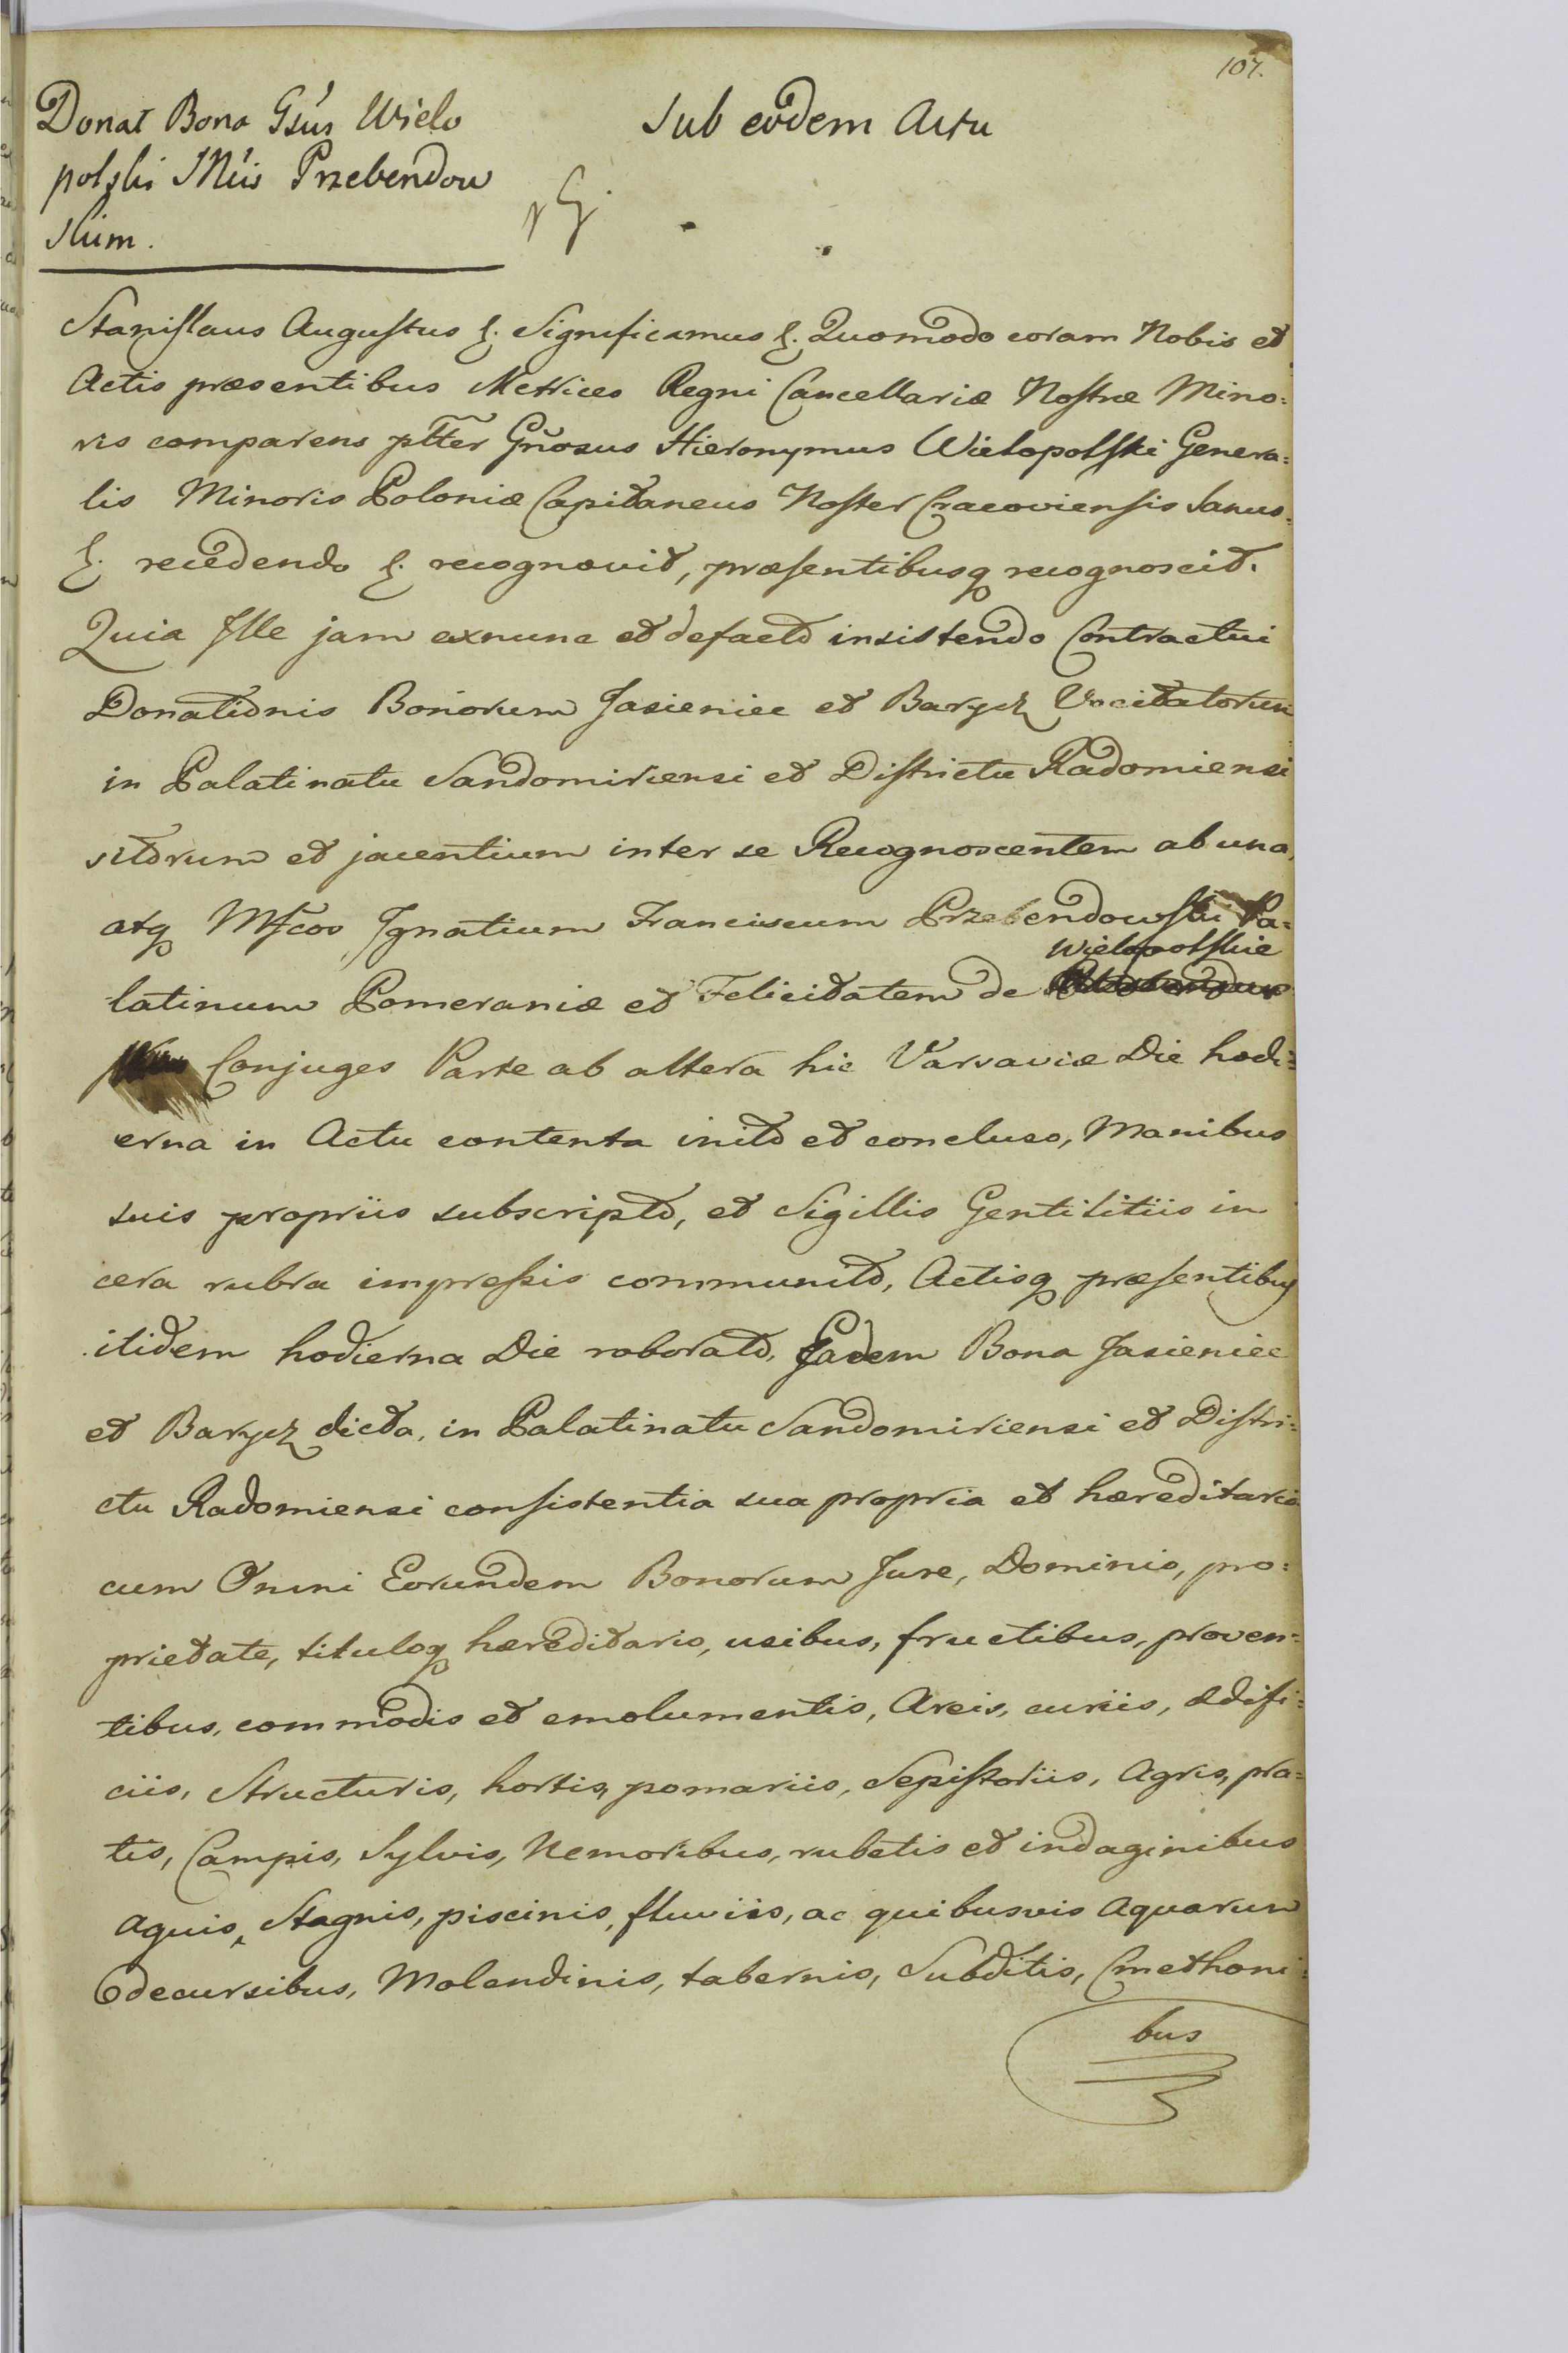 107.
Donat Bona Gsus Wielo
polski Mcis Przebendow
skim.
Sub eodem Actu
Stanislaus Augustus &. Significamus &. Quomodo coram Nobis et
Actis præsentibus Metrices Regni Cancellariæ Nostræ Mino:
ris comparens pltter Gnosus Hieronymus Wielopolski Genera:
lis Minoris Poloniæ Capitaneus Noster Cracoviensis Sanus:
&. recedendo &. recognovit, præsentibusq recognoscit.
Quia Ille jam exnunc et defacto insistendo Contractui
Donationis Bonorum Jasieniec et Barycz Vocitatorum
in Palatinatu Sandomiriensi et Districtu Radomiensi
sitorum et jacentium inter se Recognoscentem ab una,
atq Mfcos Ignatium Franciscum Przebendowski Pa:
Wielopolskie
latinum Pomeraniæ et Felicitatem de
Conjuges Parte ab altera hic Varsaviæ Die hodi:
erna in Actu contenta inito et concluso, Manibus
suis propriis subscripto, et Sigillis Gentilitiis in
cera rubra impressis communito, Actisq præsentibus
itidem hodierna Die roborato, Eadem Bona Jasieniec
et Barycz dicta, in Palatinatu Sandomiriensi et Distri:
ctu Radomiensi consistentia sua propria et hæreditaria
cum Omni Eorundem Bonorum Jure, Dominio, pro:
prietate, tituloq hæreditario, usibus, fructibus, proven:
tibus, commodis et emolumentis, Areis, curiis, ædifi:
ciis, Structuris, hortis, pomariis, Sepistoriis, Agris, pra:
tis, Campis, Sylvis, Nemoribus, rubetis et indaginibus
aquis, Stagnis, piscinis, fluviis, ac quibusvis Aquarum
decursibus, Molendinis, tabernis, Subditis, Cmethoni:
bus